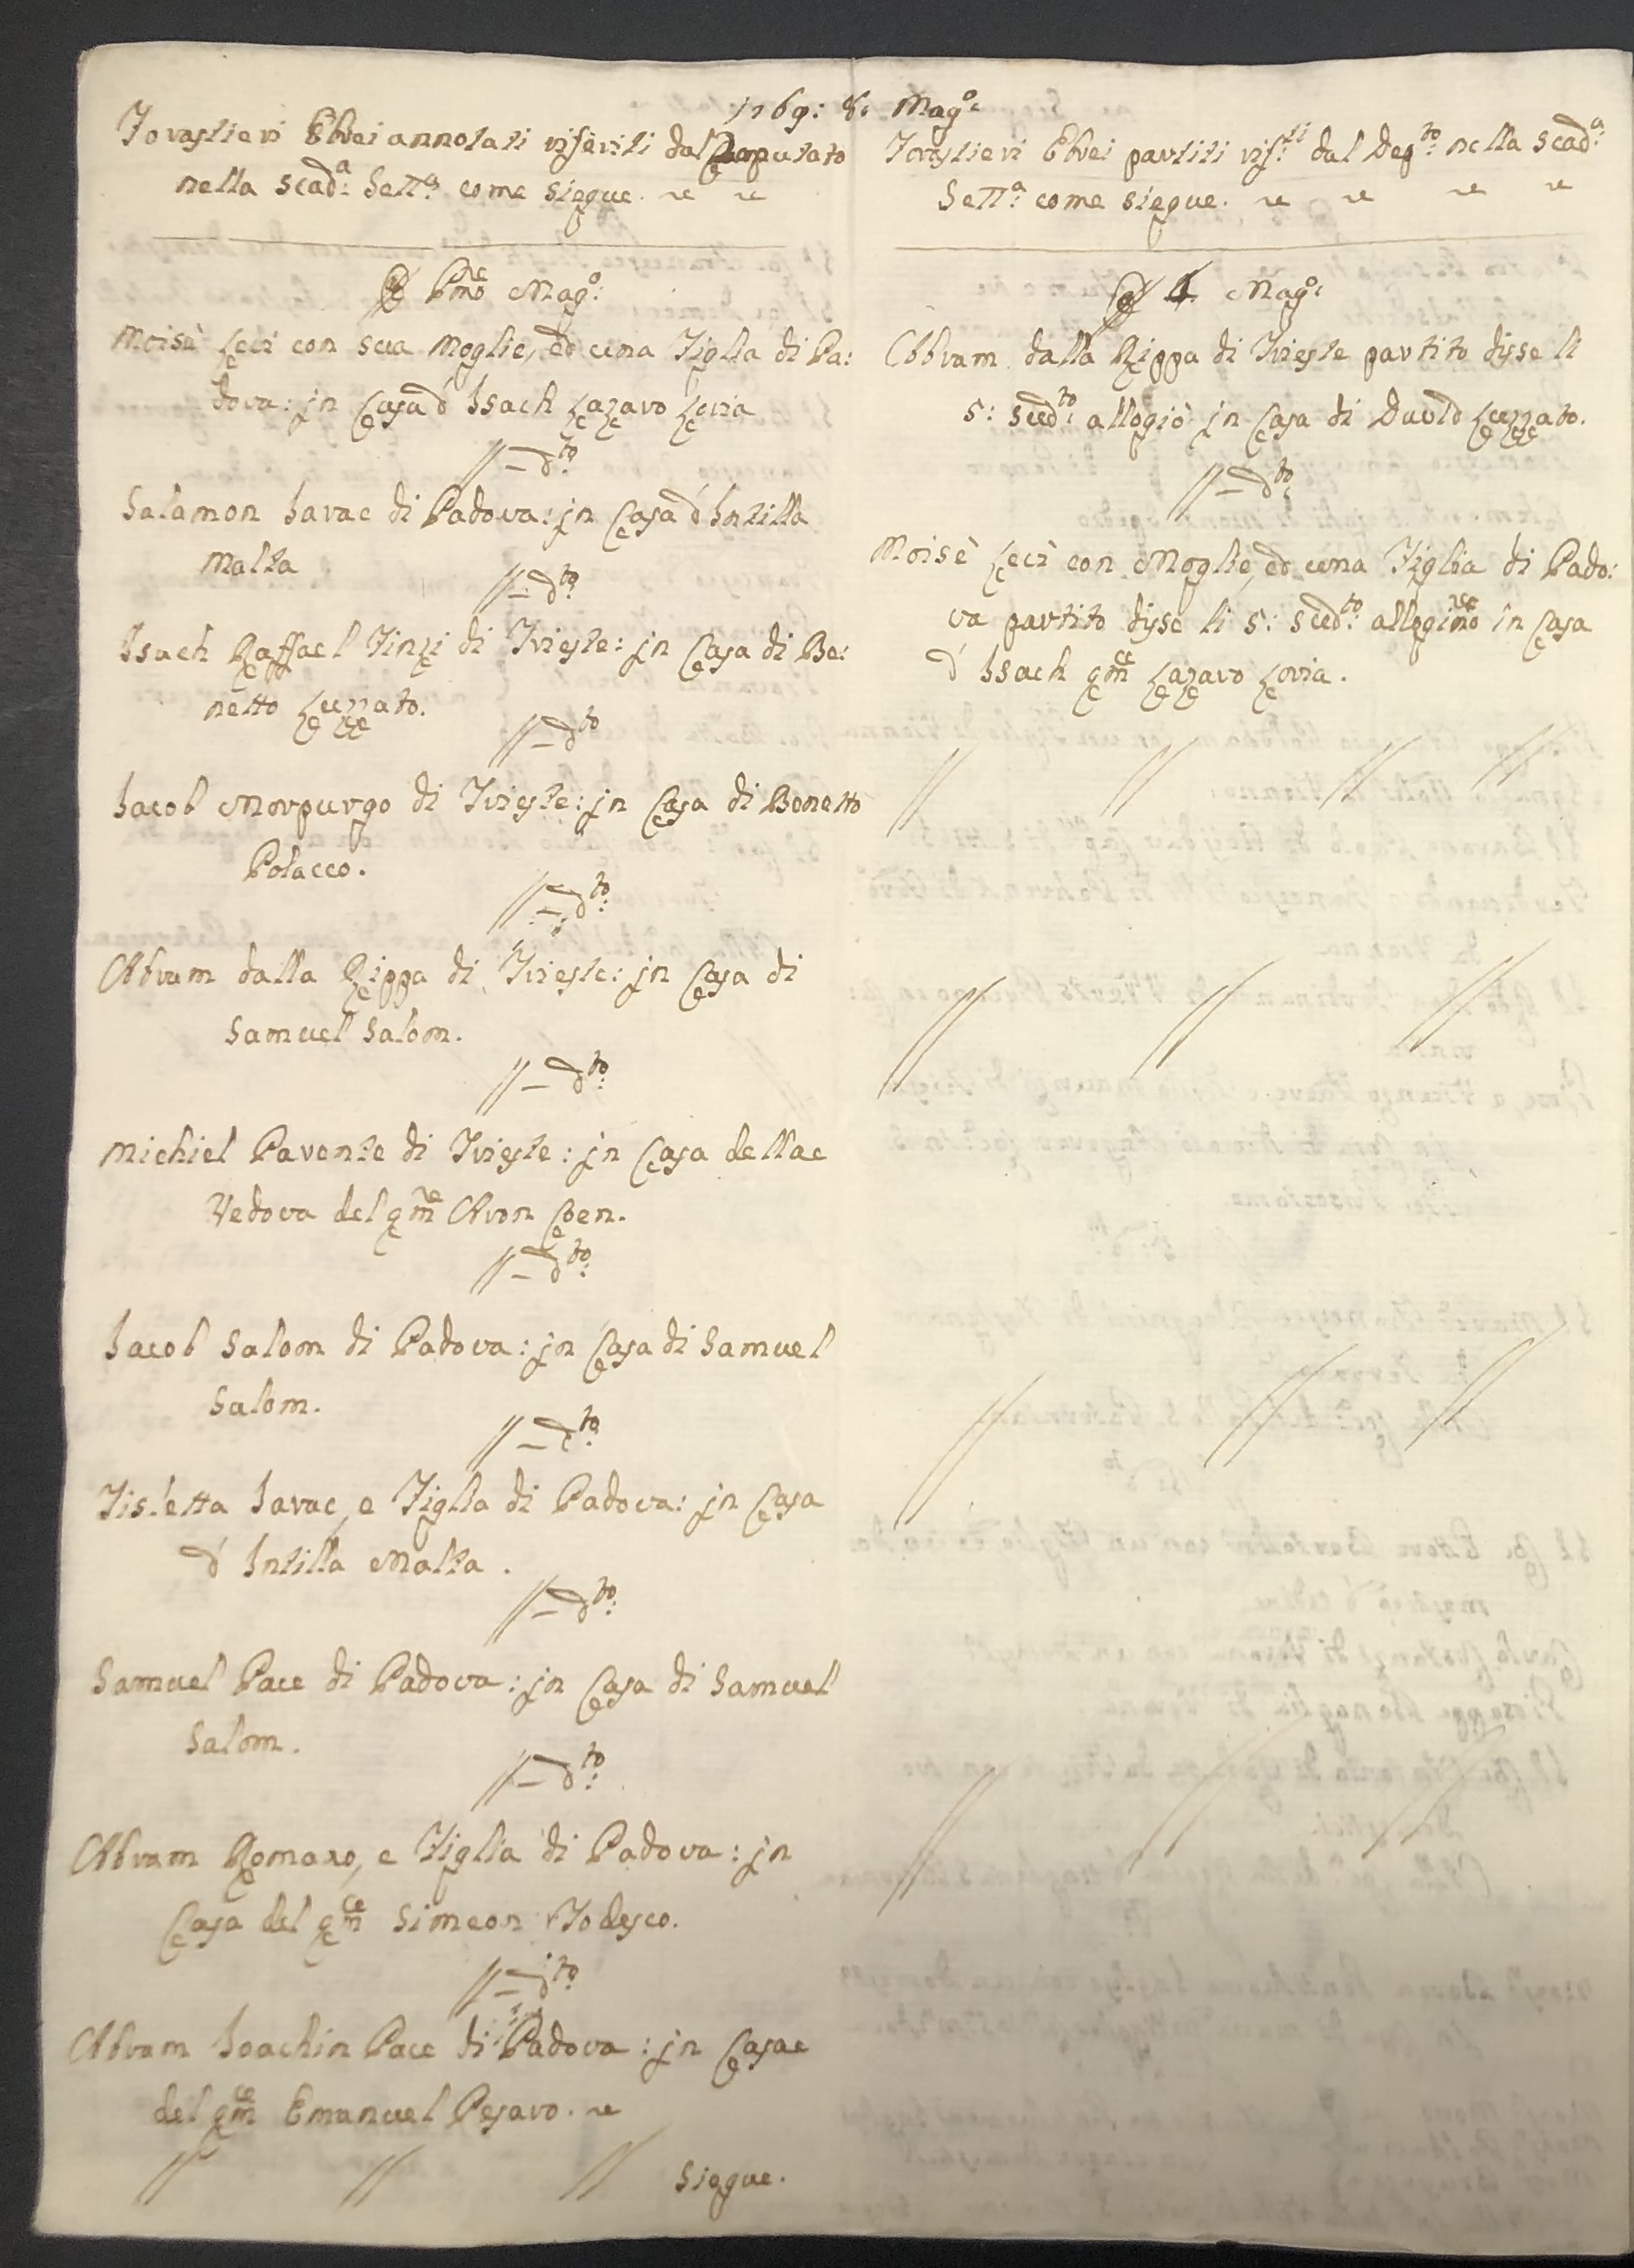 1769: 8: Magº:
Forastieri Ebrei annotati riferiti dal Deputato
nella scadª: Settª: come siegue.
Pmo Magº:
Moisè Leci con sua Moglie, ed una Figlia di Pa:
dova: jn Casa d' Isach Lazaro Levia
// – dto:
Salamon Sarac di Padova: jn Casa d' Intilla
Malta
// – dto:
Isach Raffael Finzi di Trieste: jn Casa di Be:
netto Luzzato.
// – dto
Iacob Morpurgo di Trieste: jn Casa di Benetto
Polacco.
// – dto:
Abram dalla Rippa di Trieste: jn Casa di
Samuel Salom.
// – dto:
Michiel Parente di Trieste: jn Casa della
Vedova del qm Aron Coen.
// – dto:
Iacob Salom di Padova: jn Casa di Samuel
Salom.
// – dto:
Sarac, e Figlia di Padova: jn Casa
d' Intilla Malta.
// – dto:
Samuel Pace di Padova: jn Casa di Samuel
Salom.
// – dto:
Abram Romano, e Figlia di Padova: jn
Casa del qm Simeon Todesco.
// – dto:
Abram Ioachin Pace di Padova: jn Casa
del qm Emanuel Pesaro.
// // // Siegue.
Forastieri Ebrei partiti rifti: dal Depto: nella scadª:
Settª: come siegue.
4. Magº:
Abram dalla Rippa di Trieste partito disse li
5: sudto: allogiò jn Casa di David Luzzato.
// – dto:
Moisè Leci con Moglie, ed una Figlia di Pado:
va partito disse li 5: sudto: allogimo in Casa
d' Isach qm Lazaro Lovia.
// // // //
// // //
// // //
// // //